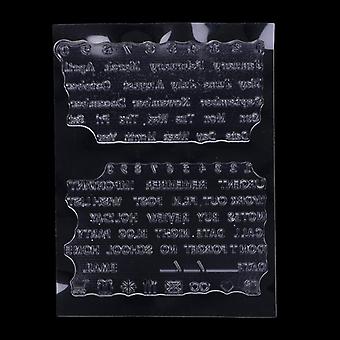 1 2 3 4 5 6 7 8 9 0
January February March April
May June July August October
September November December
Sun Mon Tue Wed Thu Fri Sat
Date Day Week Month Year
1 2 3 4 5 6 7 8 9 0
URGENT REMEMBER IMPORTANT
WORK OUT REAL POST WISH LIST
NOTES BUY REVIEW HOLIDAY
CALL DATE NIGHT BLOG PARTY
DON'T FORGET NO SCHOOL HOME
DATE / / EMAIL